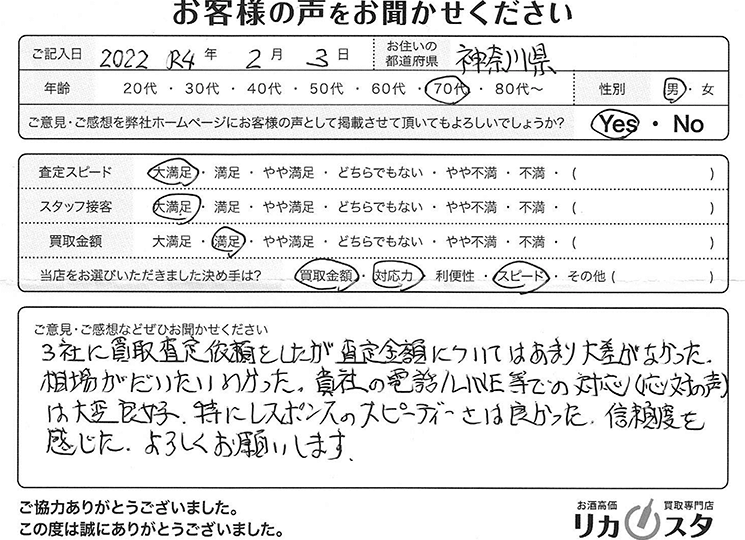 お客様の声をお聞かせください
ご記入日 2022 R4 年 2 月 3 日 お住いの都道府県 神奈川県
年齢 20代 ・ 30代 ・ 40代 ・ 50代 ・ 60代 ・ 70代 ・ 80代〜 性別 男 ・ 女
ご意見・ご感想を弊社ホームページにお客様の声として掲載させて頂いてもよろしいでしょうか? Yes ・ No
査定スピード 大満足 ・ 満足 ・ やや満足 ・ どちらでもない ・ やや不満 ・ 不満 ・ ( )
スタッフ接客 大満足 ・ 満足 ・ やや満足 ・ どちらでもない ・ やや不満 ・ 不満 ・ ( )
買取金額 大満足 ・ 満足 ・ やや満足 ・ どちらでもない ・ やや不満 ・ 不満 ・ ( )
当店をお選びいただきました決め手は? 買取金額 ・ 対応力 ・ 利便性 ・ スピード ・ その他 ( )
ご意見・ご感想などぜひお聞かせください
3社に買取査定依頼をしたが査定金額についてはあまり大差がなかった.
相場がだいたいわかった. 貴社の電話/LINE等での対応(応対の声)
は大変良好. 特にレスポンスのスピーディーさは良かった. 信頼度を
感じた. よろしくお願いします.
ご協力ありがとうございました。
この度は誠にありがとうございました。
お酒高価 買取専門店
リカスタ